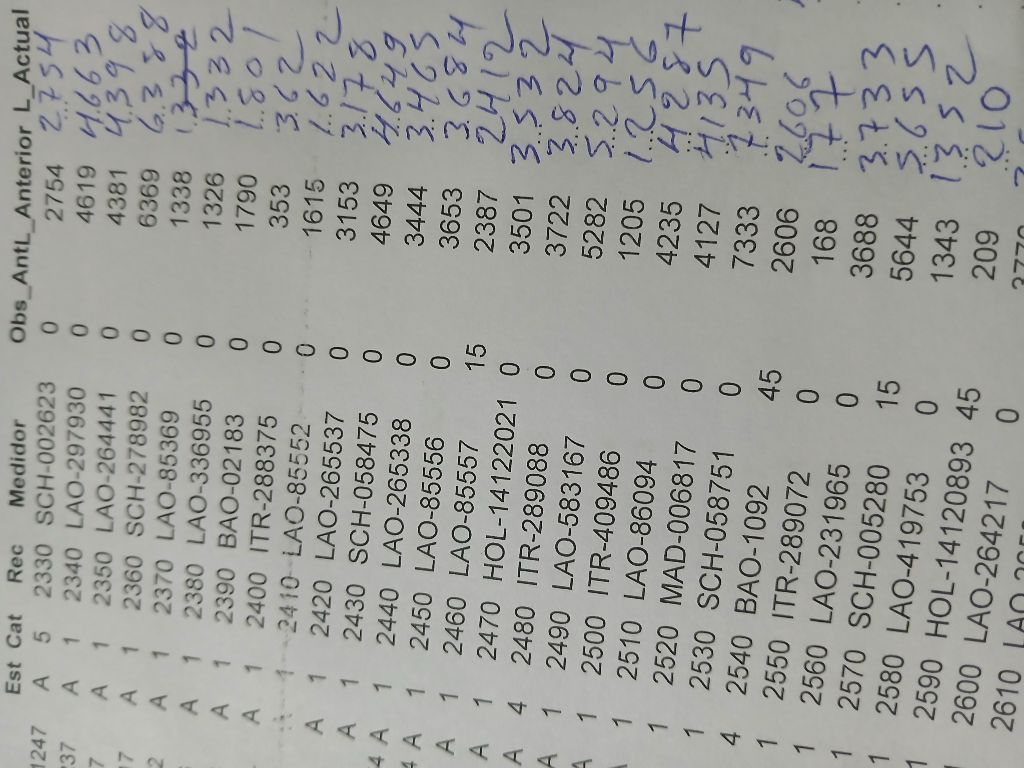 Est Cat Rec Medidor Obs_AntL_Anterior L_Actual
1247 A 5 2330 SCH-002623 0 2754 2754
237 A 1 2340 LAO-297930 0 4619 4663
7 A 1 2350 LAO-264441 0 4381 4398
17 A 1 2360 SCH-278982 0 6369 6388
2 A 1 2370 LAO-85369 0 1338
A 1 2380 LAO-336955 0 1326 1332
A 1 2390 BAO-02183 0 1790 1801
A 1 2400 ITR-288375 0 353 362
1 2410 LAO-85552 0 1615 1622
A 1 2420 LAO-265537 0 3153 3178
A 1 2430 SCH-058475 0 4649 4649
4 A 1 2440 LAO-265338 0 3444 3465
4 A 1 2450 LAO-85556 0 3653 3684
A 1 2460 LAO-85557 15 2387 2412
A 1 2470 HOL-14122021 0 3501 3532
A 4 2480 ITR-289088 0 3722 3824
A 1 2490 LAO-583167 0 5282 5294
A 1 2500 ITR-409486 0 1205 1256
1 2510 LAO-86094 0 4235 4287
1 2520 MAD-006817 0 4127 4135
1 2530 SCH-058751 0 7333 7349
4 2540 BAO-1092 45 2606 2606
1 2550 ITR-289072 0 168 177
1 2560 LAO-231965 0 3688 3733
1 2570 SCH-005280 15 5644 5655
1 2580 LAO-419753 0 1343 1352
1 2590 HOL-14120893 45 209 210
2600 LAO-264217 0
2610